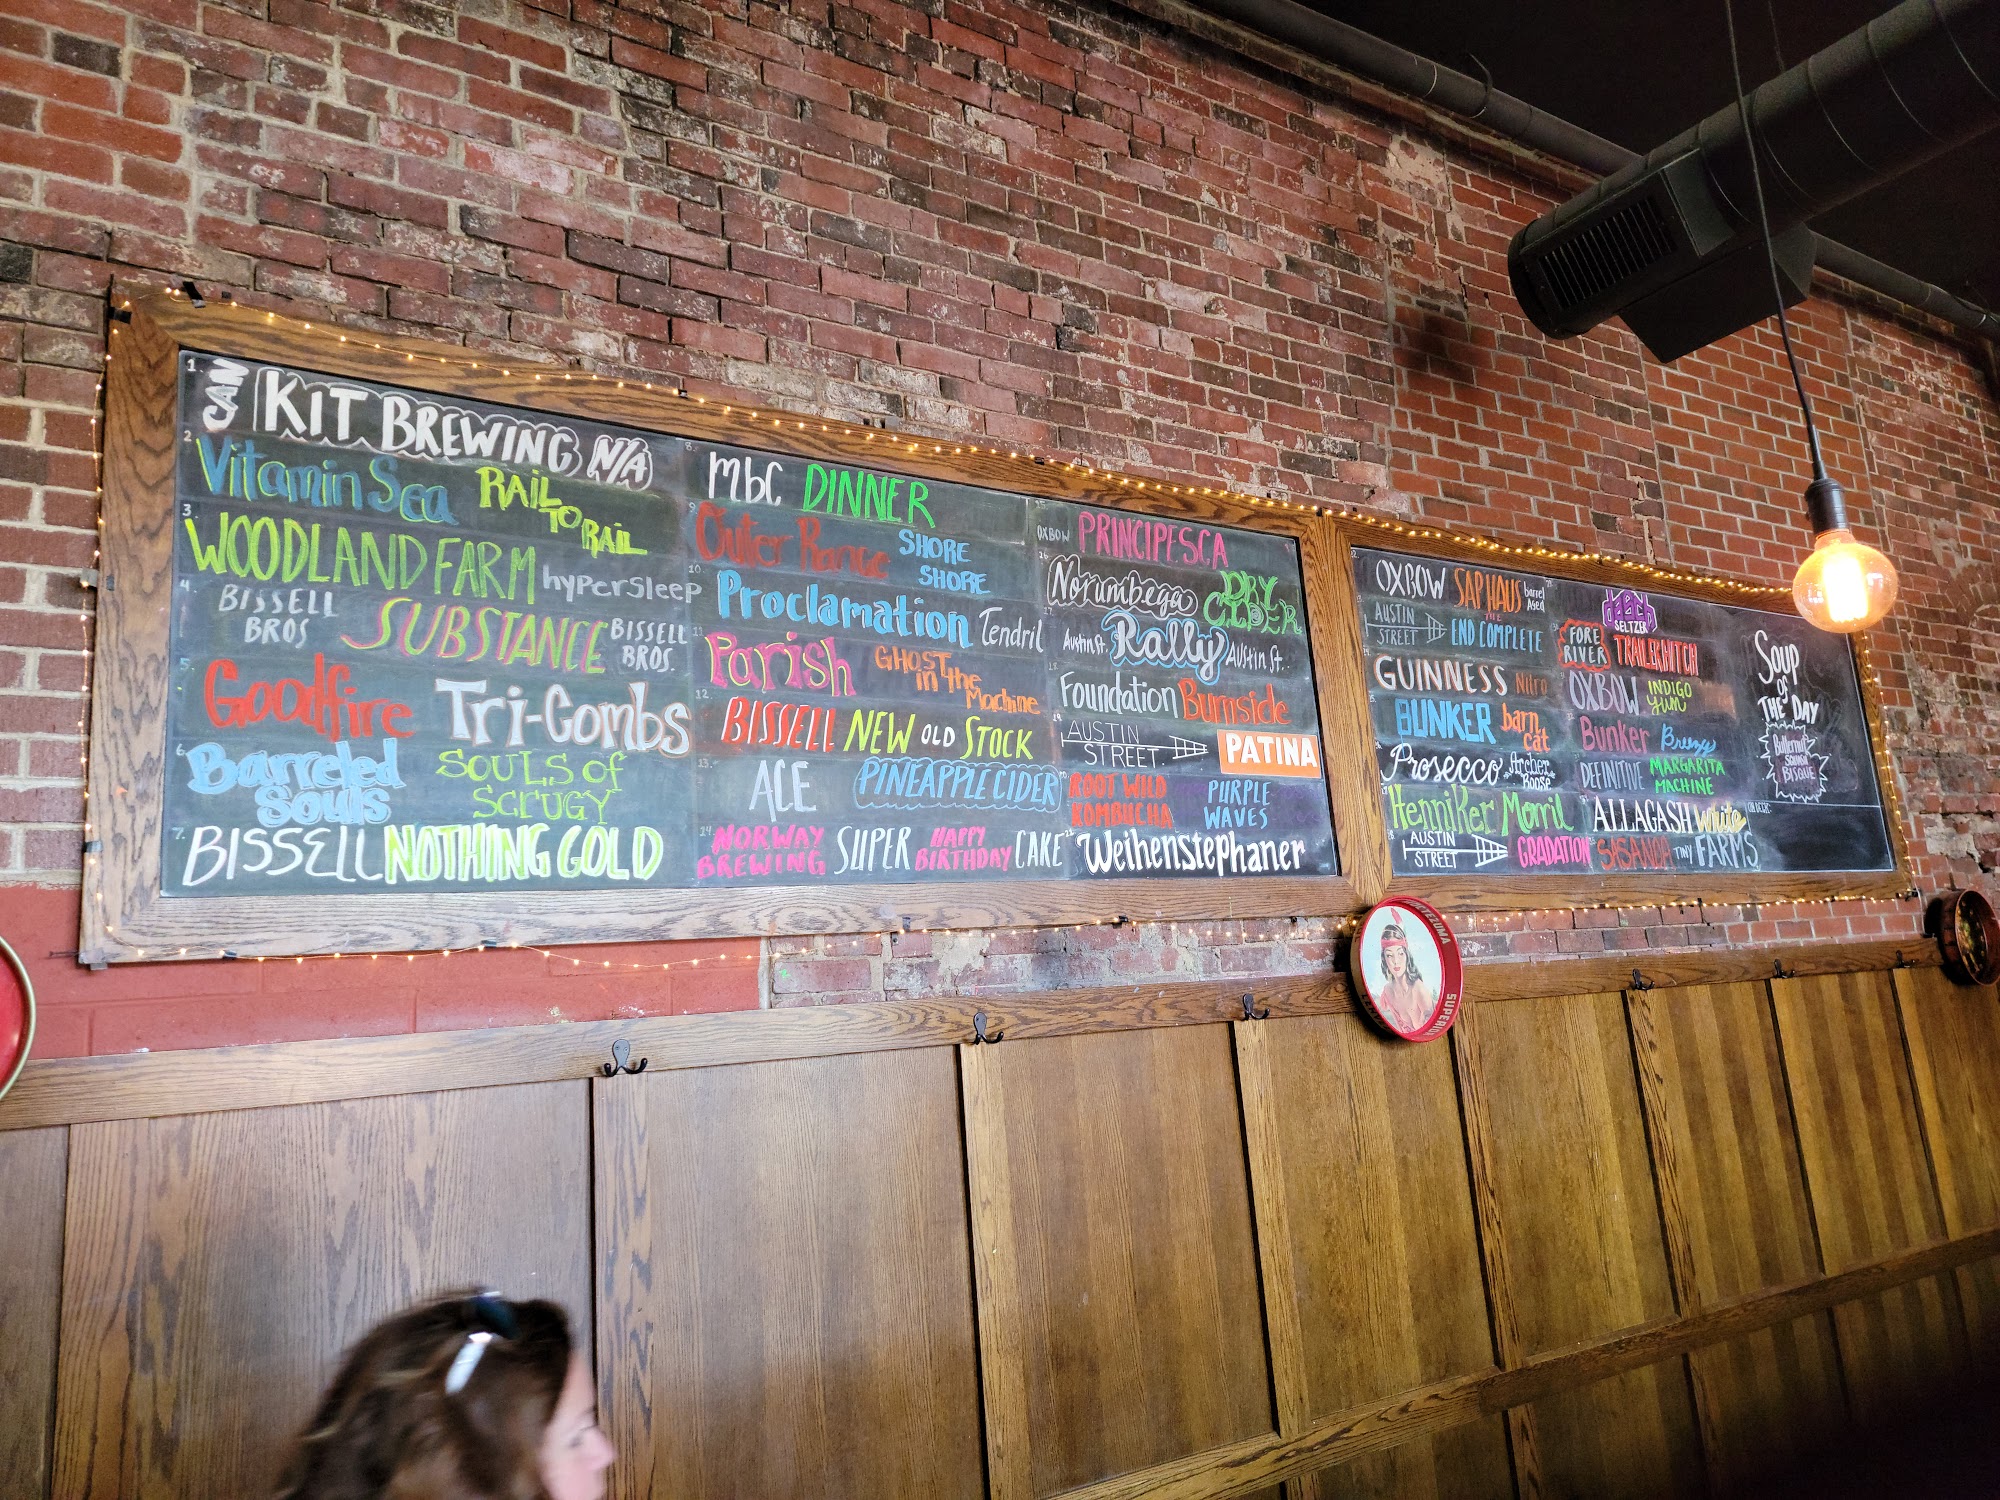 1. CAN KIT BREWING N/A
2. Vitamin Sea RAIL TO RAIL
3. WOODLAND FARM hypersleep
4. BISSELL BROS SUBSTANCE BISSELL BROS.
5. Goodfire Tri-Combs
6. Barreled Souls SOULS of SCRUGY
7. BISSELL NOTHING GOLD
8. MBC DINNER
9. Outer Range SHORE SHORE
10. Proclamation Tendril
11. Parish GHOST in the Machine
12. BISSELL NEW OLD STOCK
13. ACE PINEAPPLE CIDER
14. NORWAY BREWING SUPER HAPPY BIRTHDAY CAKE
15. OXBOW PRINCIPESCA
16. Norumbega DRY CIDER
17. Austin St. Rally Austin St.
18. Foundation Burnside
19. AUSTIN STREET. PATINA
20. ROOT WILD KOMBUCHA PURPLE WAVES
Weihenstephaner
OXBOW SAP HAUS barrel Aged
AUSTIN STREET THE END COMPLETE
GUINNESS Nitro
BUNKER barn cat
Prosecco Archer Roose
Henniker Morril
AUSTIN STREET GRADATION
SELTZER
FORE RIVER
OXBOW INDIGO
Bunker Breezy
DEFINITIVE MARGARITA MACHINE
ALLAGASH White
TINY FARMS
SOUP
OF
THE DAY
Butternut
SQUASH
BISQUE
SUPERIOR